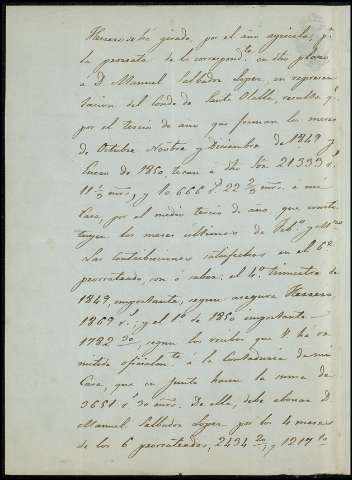 Herrero se ha girado, por el año agricola, pa.
la prorata de lo correspondte. en dho plazo
á D. Manuel Salbador Lopez, en represen
tacion del Conde de Santa Olalla, resulta qe.
por el tercio de año que forman los meses
de Octubre, Novbre y Diciembre de 1849 y
Enero de 1850, tocan á dho Sor. 21333 rs.
11 1/3 mrs., y 10.666 rs. 22 2/3 mrs. á mi
Casa, por el medio tercio de año, que consti
tuyen los meses ultimos de Febo. y Mzo
Las contribuciones satisfechas en el 6o.
prorrateado, son á saber: el 4o. trimestre de
1849, importante, segun asegura Herrero
1869 rs.; y el 1o. de 1850 importante
1782 30, segun los recibos que V. ha re
mitido oficialmte. á la Contaduria de mi
Casa, que en junto hacen la suma de
3651 rs. 30 mrs. De ella, debe abonar D.
Manuel Salbador Lopez, por los 4 meses
de los 6 prorrateados, 2434 20; y 1217 10